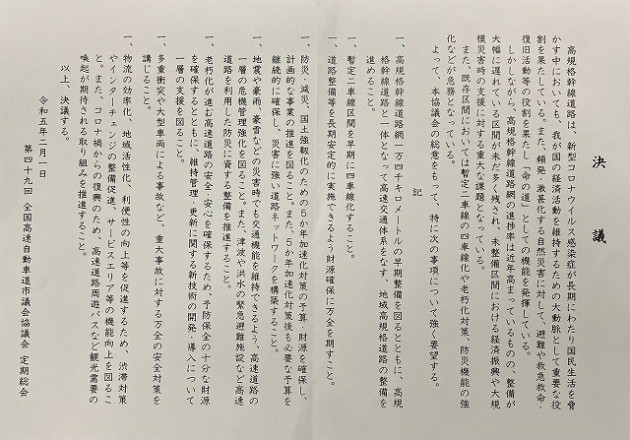 決議
高規格幹線道路は、新型コロナウイルス感染症が長期にわたり国民生活を脅
かす中においても、我が国の経済活動を維持するための大動脈として重要な役
割を果たしている。また、頻発・激甚化する自然災害に対して、避難や救急救命・
復旧活動等の役割を果たし「命の道」としての機能を発揮している。
しかしながら、高規格幹線道路網の進捗率は近年高まっているものの、整備が
大幅に遅れている区間が未だ多く残され、未整備区間における経済振興や大規
模災害時の支援に対する重大な課題となっている。
また、既存区間においては暫定二車線の四車線化や老朽化対策、防災機能の強
化などが急務となっている。
よって、本協議会の総意をもって、特に次の事項について強く要望する。
記
一、高規格幹線道路網一万四千キロメートルの早期整備を図るとともに、高規
格幹線道路と一体となって高速交通体系をなす、地域高規格道路の整備を
進めること。
一、暫定二車線区間を早期に四車線化すること。
一、道路整備等を長期安定的に実施できるよう財源確保に万全を期すこと。
一、防災・減災、国土強靱化のための5か年加速化対策の予算・財源を確保し、
計画的な事業の推進を図ること。また、5か年加速化対策後も必要な予算を
継続的に確保し、災害に強い道路ネットワークを構築すること。
一、地震や豪雨、豪雪などの災害時でも交通機能を維持できるよう、高速道路の
一層の危機管理強化を図ること。また、津波や洪水の緊急避難施設など高速
道路を利用した防災に資する整備を推進すること。
一、老朽化が進む高速道路の安全・安心を確保するため、予防保全の十分な財源
を確保するとともに、維持管理・更新に関する新技術の開発・導入について
一層の支援を図ること。
一、多重衝突や大型車両による事故など、重大事故に対する万全の安全対策を
講じること。
一、物流の効率化、地域活性化、利便性の向上等を促進するため、渋滞対策
やインターチェンジの整備促進、サービスエリア等の機能向上を図るこ
と。また、コロナ禍からの復興のため、高速道路周遊パスなど観光需要の
喚起が期待される取り組みを推進すること。
以上、決議する。
令和五年二月一日
第四十九回 全国高速自動車道市議会協議会 定期総会